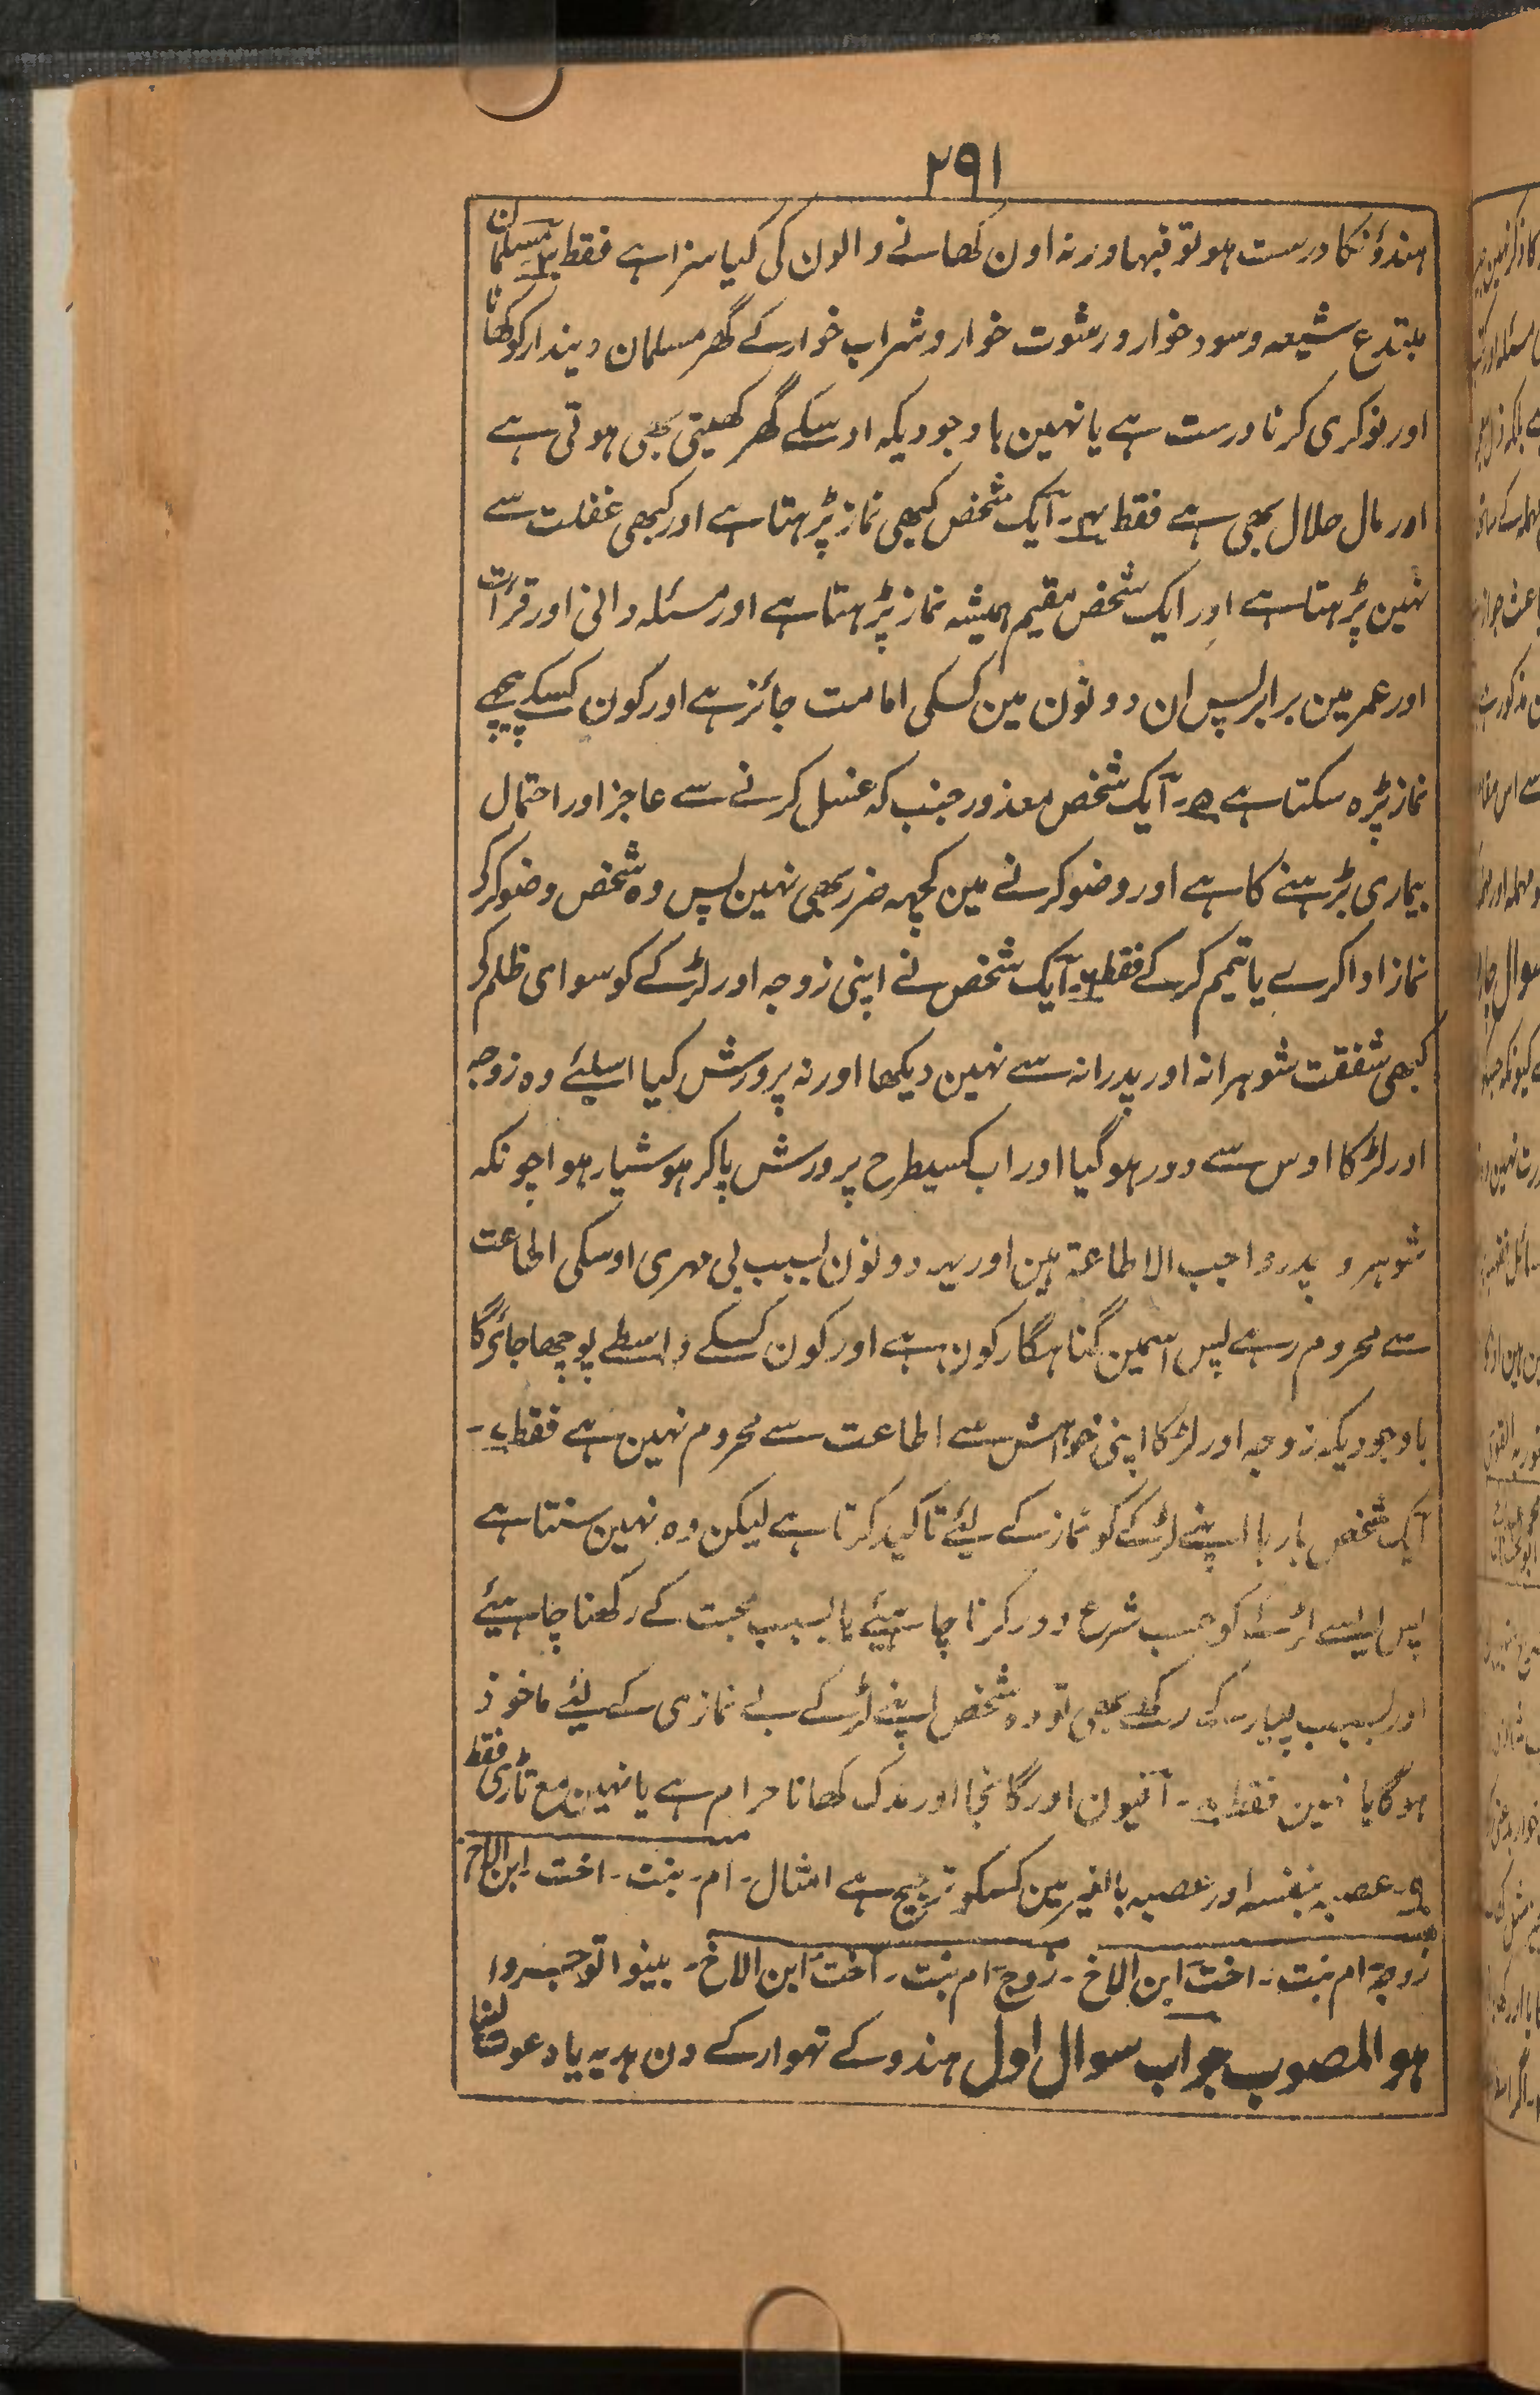 ۲۹۱
ہندؤنکا درست ہو تو فبہا ورنہ اون کھانے والون کی کیا سزا ہے فقط ۳۔ مسلمان
مبتدع شیعہ و سود خوار و رشوت خوار و شراب خوار کے گھر مسلمان دیندار کو کھانا
اور نوکری کرنا درست ہے یا نہین باوجودیکہ اوسکے گھر کھیتی بھی ہوتی ہے
اور مال حلال بھی ہے فقط ۴۔ ایک شخص کبھی نماز پڑہتا ہے اور کبھی غفلت سے
نہین پڑہتا ہے اور ایک شخص مقیم ہمیشہ نماز پڑہتا ہے اور مسئلہ دانی اور قرأت
اور عمر مین برابر پس ان دونون مین کسکی امامت جائز ہے اور کون کسکے پیچھے
نماز پڑہ سکتا ہے ۵۔ ایک شخص معذور جنب کہ غسل کرنے سے عاجز اور احتمال
بیماری بڑہنے کا ہے اور وضو کرنے مین کچہہ ضرر بھی نہین پس وہ شخص وضو کر کر
نماز ادا کرے یا تیمم کر کے فقط ۶۔ ایک شخص نے اپنی زوجہ اور لڑکے کو سوای ظلم کر
کبھی شفقت شوہرانہ اور پدرانہ سے نہین دیکھا اور نہ پرورش کیا اسلئے وہ زوجہ
اور لڑکا اوس سے دور ہو گیا اور اب کسیطرح پرورش پا کر ہوشیار ہوا چونکہ
شوہر و پدر واجب الاطاعۃ ہین اور یہہ دونون بسبب بی مہری اوسکی اطاعت
سے محروم رہے پس اسمین گناہگار کون ہے اور کون کسکے واسطے پوچھا جائیگا
باوجودیکہ زوجہ اور لڑکا اپنی خواہش سے اطاعت سے محروم نہین ہے فقط ۷۔
ایک شخص بارہا اپنے لڑکے کو نماز کے لئے تاکید کرتا ہے لیکن وہ نہین سنتا ہے
پس ایسے لڑکے کو حسب شرع دور کرنا چاہیئے یا بسبب محبت کے رکھنا چاہیئے
اور بسبب پیار کی رکھے بھی تو وہ شخص اپنے لڑکے بے نمازی کے لئے ماخوذ
ہوگا یا نہین فقط ۸۔ افیون اور گانجا اور مدک کھانا حرام ہے یا نہین مع تاڑی فقط
۹۔ عصبہ بنفسہ اور عصبہ بالغیر مین کسکو ترجیح ہے امثال۔ ام۔ بنت۔ اخت۔ ابن الاخ
زوجۃ ام بنت۔ اخت ابن الاخ۔ زوج ام بنت۔ اخت ابن الاخ۔ بینوا توجروا
ہو المصوب جواب سوال اول ہندو کے تہوار کے دن ہدیہ یا دعوت